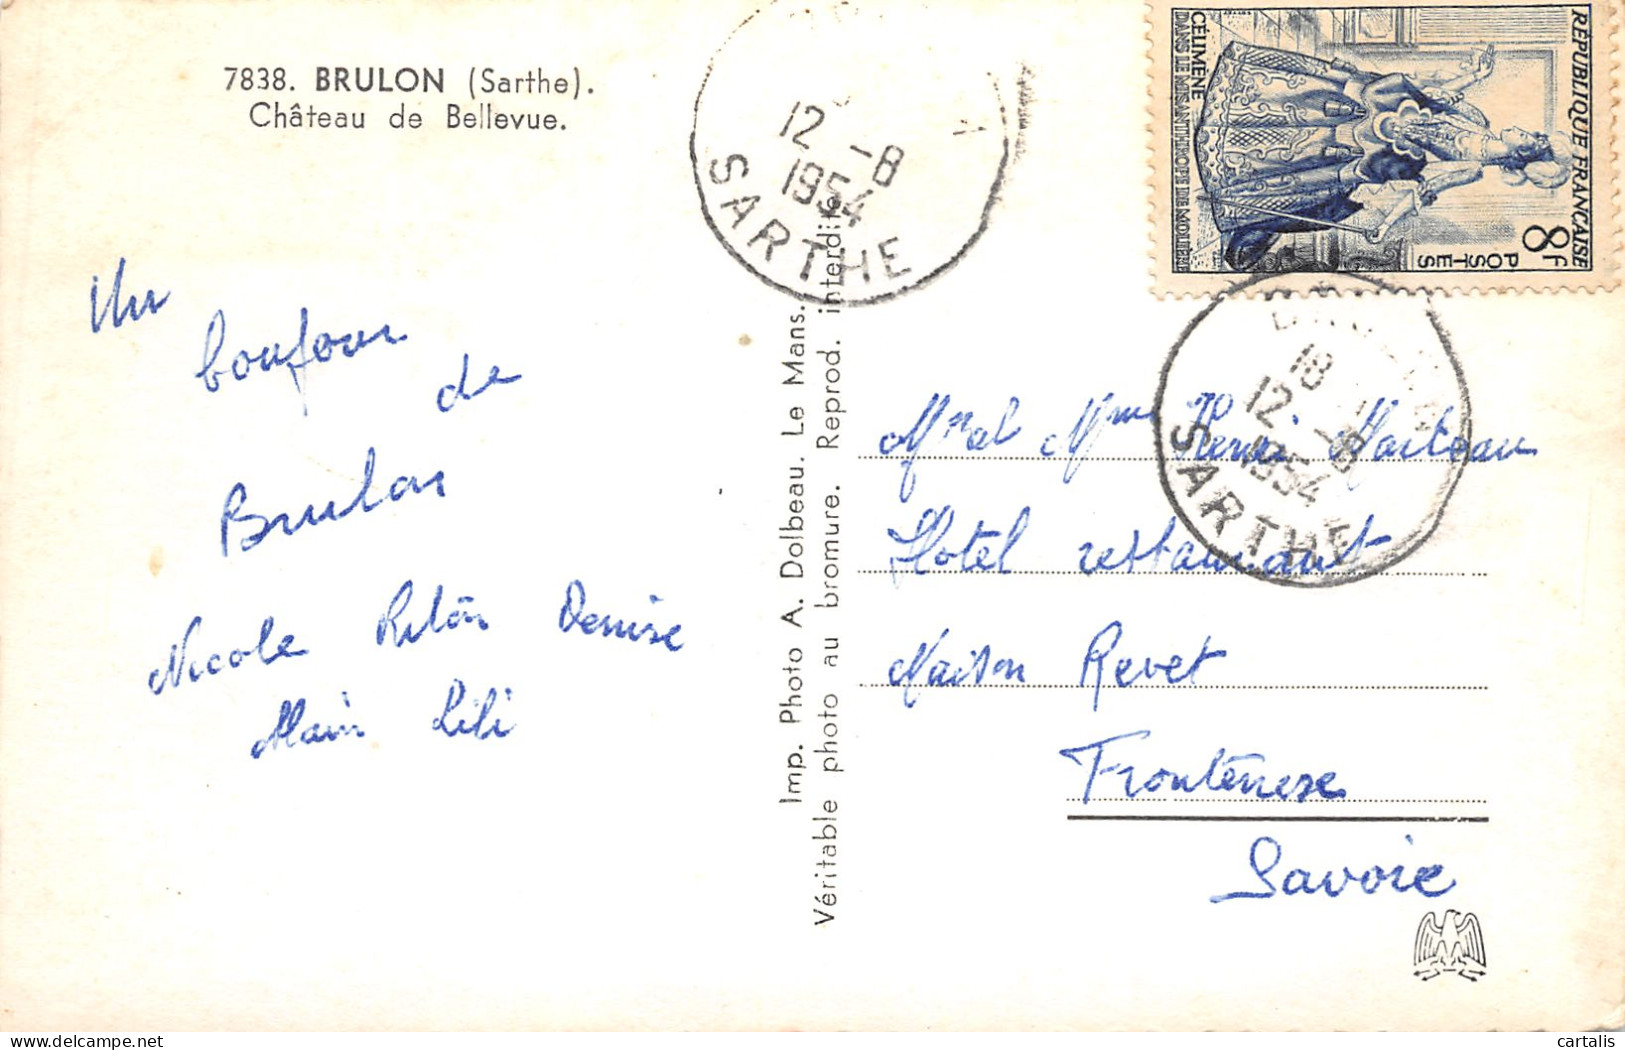 7838. BRULON (Sarthe).
Château de Bellevue.
Un
bonjour
de
Brulon
Nicole Denise
Alain Lili
Imp. Photo A. Dolbeau. Le Mans.
Véritable photo au bromure. Reprod. interdite
12 -8
1954
SARTHE
RÉPUBLIQUE FRANÇAISE
8F
POSTES
CÉLIMÈNE
DANS LE MISANTHROPE DE MOLIÈRE
18
12 -8
1954
SARTHE
Mr et Mme Henri Marteau
Hotel restaurant
Maison Revet
Frontenex
Savoie
cartalis
delcampe.net